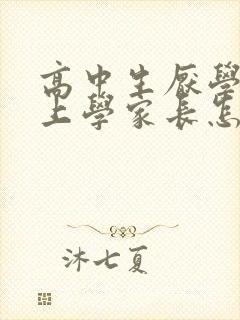 高中生厭學
上學家長怎
沐七夏